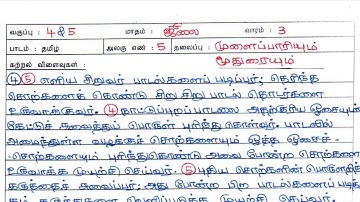 வகுப்பு : 4 & 5 மாதம் : ஜூலை வாரம் : 3
பாடம் : தமிழ் அலகு எண் : 5 தலைப்பு : முளைப்பாரியும் மூதுரையும்
கற்றல் விளைவுகள் :
4 5 எளிய சிறுவர் பாடல்களைப் படிப்பர்; தெரிந்த
சொற்களைக் கொண்டு சிறு சிறு பாடல் தொடர்களை
உருவாக்குவர். 4 நாட்டுப்புறப்பாடலை அதற்குரிய ஓசையுடன்
கேட்டுச் சுவைத்துப் பொருள் புரிந்து கொள்வர். பாடலில்
அமைந்துள்ள வழக்குச் சொற்களையும் ஒத்த ஓசைச்
சொற்களையும் புரிந்துகொண்டு அவை போன்ற சொற்களை
உருவாக்க முயற்சி செய்வர். 5 புதிய சொற்களின் பொருளறிந்து
கருத்தைச் சுவைப்பர்; அது போன்ற பிற பாடல்களைப் படித்துப்